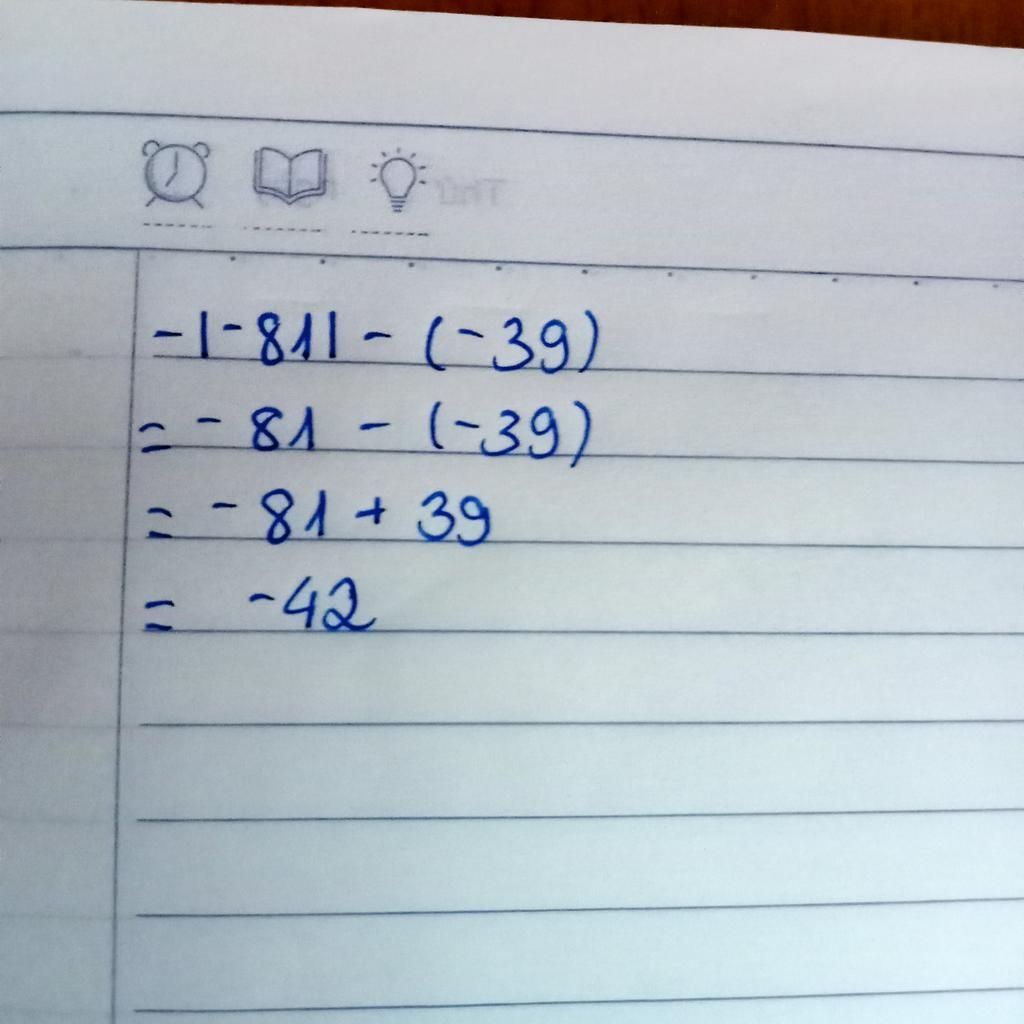 -|-81| - (-39)
= - 81 - (-39)
= - 81 + 39
= -42